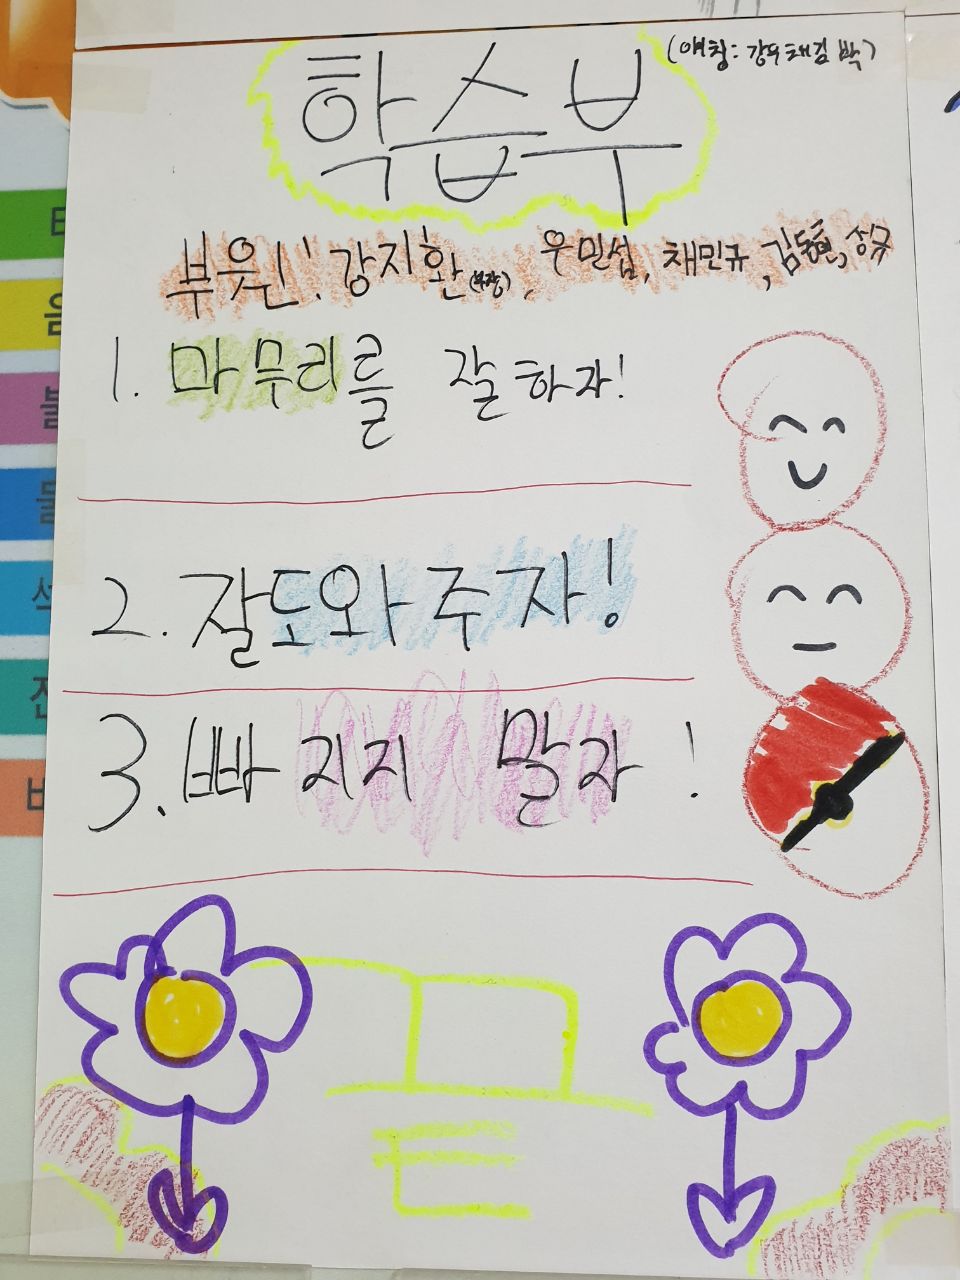 학습부
(애칭: 강우채김박)
부원: 강지환(부장), 우민섭, 채민규, 김동현,
1. 마무리를 잘하자!
2. 잘도와주자!
3. 빠지지 말자!
모
든